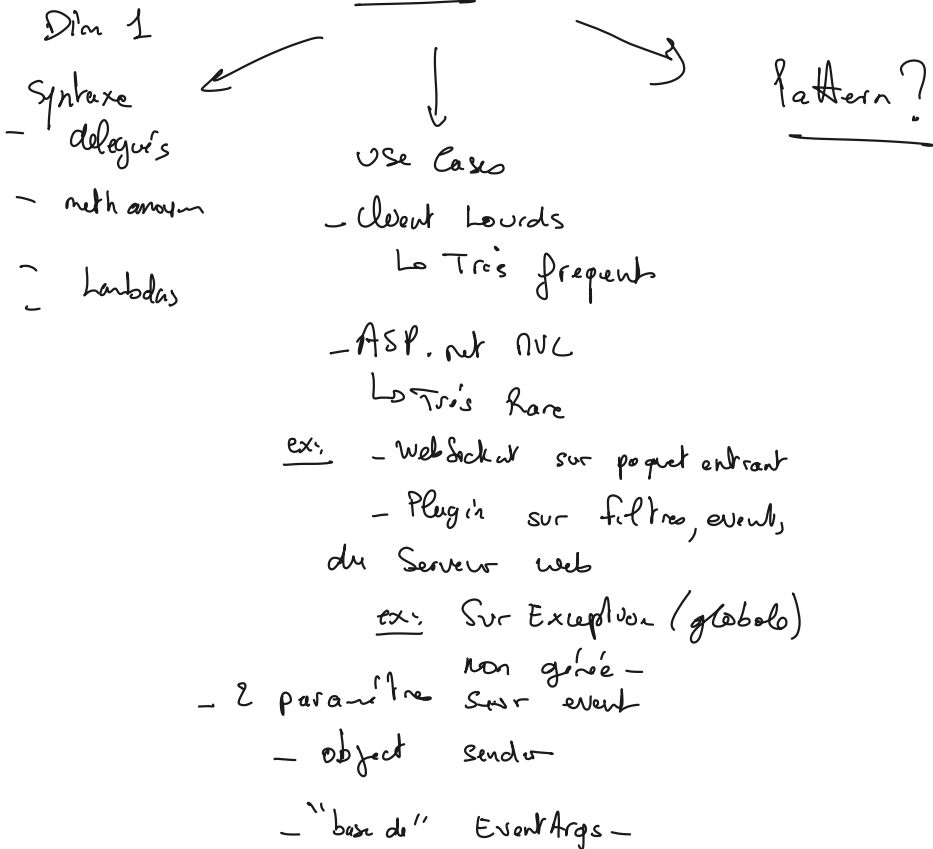 Dim 1
Syntaxe
- delegués
- meth anonym
- Lambdas
Use Cases
- Client Lourds
↳ Très frequent
- ASP.net MVC
↳ Très Rare
ex: - WebSocket sur paquet entrant
- Plugin sur filtres, events,
du Serveur web
ex: Sur Exception (globale)
non gérée -
- 2 paramètres sur event
- object sender
- "base de" EventArgs -
Pattern ?